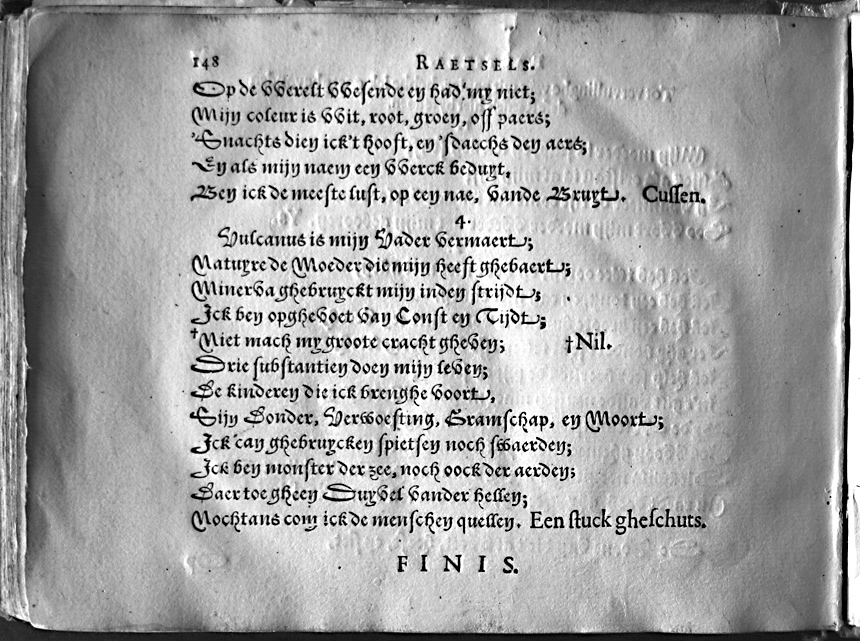 148 RAETSELS.
Op de VVerelt VVesende en had' my niet;
Mijn coleur is VVit, root, groen, off paers;
'Snachts dien ick't hooft, en 'sdaechs den aers;
En als mijn naem een VVerck beduyt,
Ben ick de meeste lust, op een nae, vande Bruyt. Cussen.
4.
Vulcanus is mijn Vader vermaert;
Natuyre de Moeder die mijn heeft ghebaert;
Minerva ghebruyckt mijn inden strijdt;
Ick ben opghevoet van Const en Tijdt;
†Niet mach my groote cracht gheven; †Nil.
Drie substantien doen mijn leven;
De kinderen die ick brenghe voort,
Sijn Donder, Verwoesting, Gramschap, en Moort;
Ick can ghebruycken spietsen noch swaerden;
Ick ben monster der zee, noch oock der aerden;
Daer toe gheen Duyvel vander hellen;
Nochtans com ick de menschen quellen. Een stuck gheschuts.
FINIS.